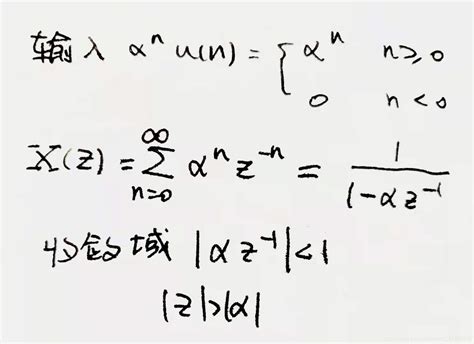 输入 αⁿ u(n) = { αⁿ n≥0
0 n<0
X(z) = ∑_{n=0}^{∞} αⁿ z⁻ⁿ = 1/(1-αz⁻¹)
收敛域 |αz⁻¹|<1
|z|>|α|